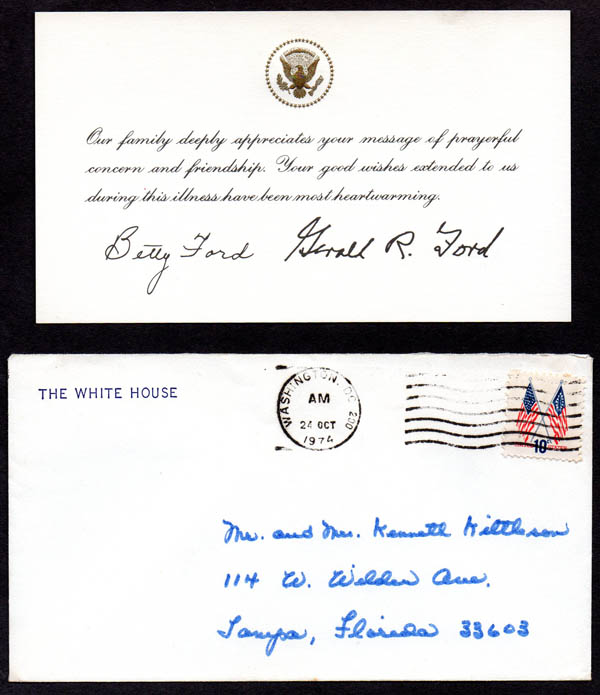 Our family deeply appreciates your message of prayerful
concern and friendship. Your good wishes extended to us
during this illness have been most heartwarming.
Betty Ford Gerald R. Ford
THE WHITE HOUSE
WASHINGTON, DC 200
AM
24 OCT
1974
10c
Mr. and Mrs. Kenneth Kittleson
114 W. Wilder Ave.
Tampa, Florida 33603